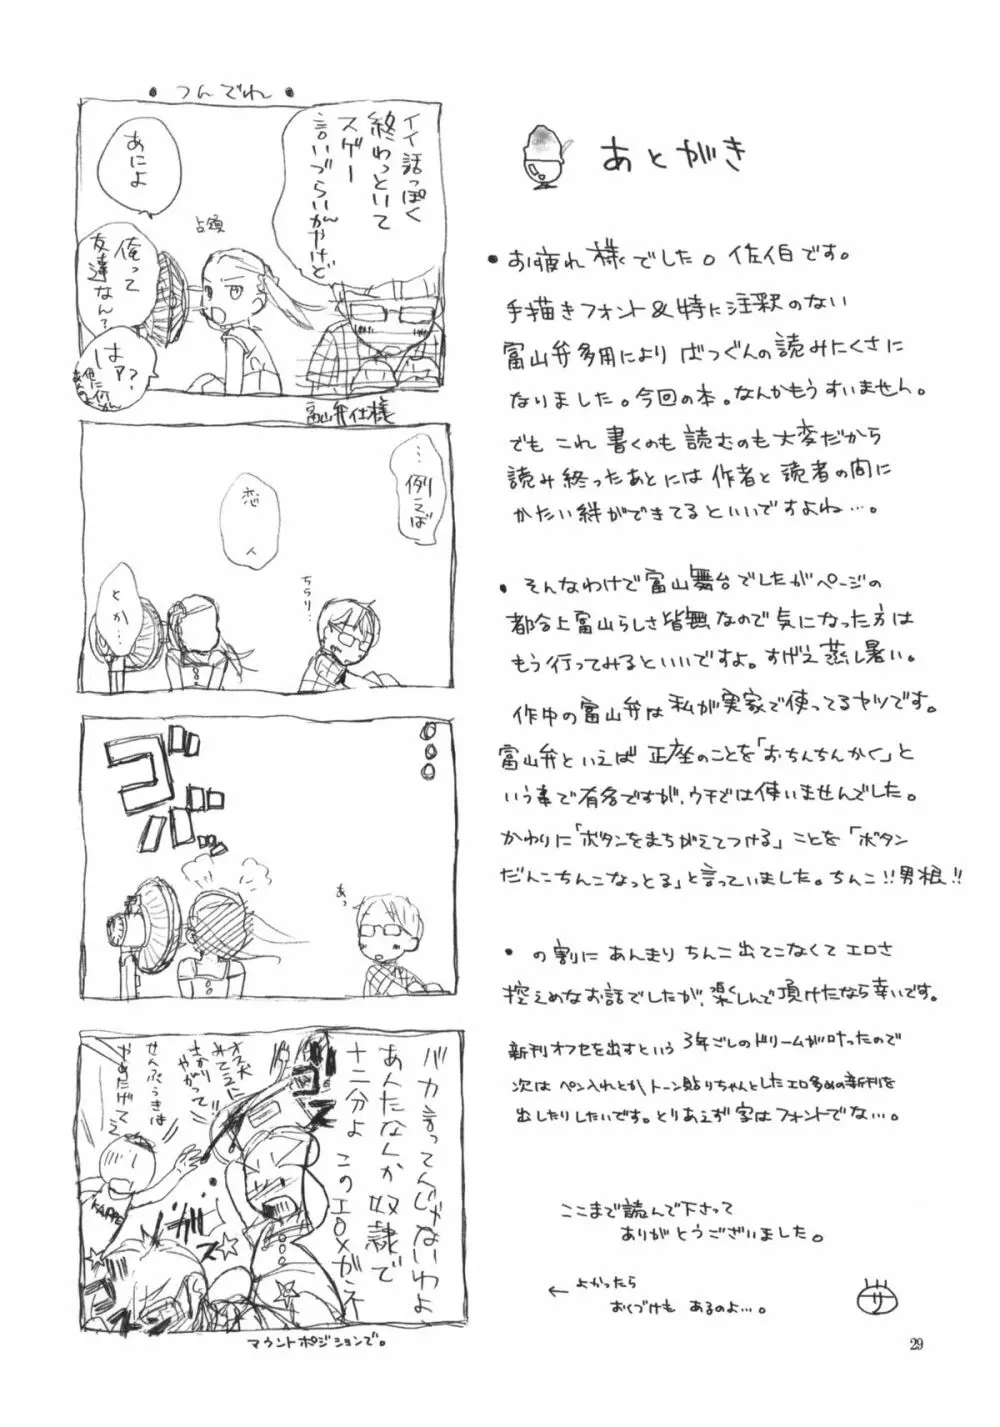 あとがき
・お疲れ様でした。佐伯です。
手描きフォント&特に注釈のない
富山弁多用により ばつぐんの読みにくさに
なりました。今回の本。なんかもうすいません。
でも これ 書くのも 読むのも 大変だから
読み終ったあとには 作者と 読者の間に
かたい絆ができてるといいですよね…。
・そんなわけで富山舞台でしたがページの
都合上富山らしさ皆無なので気になった方は
もう行ってみるといいですよ。すげえ蒸し暑い。
作中の富山弁は私が実家で使ってるヤツです。
富山弁といえば 正座のことを「おちんちんかく」と
いう事で有名ですが、ウチでは使いませんでした。
かわりに「ボタンをまちがえてつける」ことを「ボタン
だんこちんこなっとる」と言っていました。ちんこ!!男根!!
・の割に あんまり ちんこ出てこなくて エロさ
控えめなお話でしたが、楽しんで頂けたなら幸いです。
新刊オフセを出すという 3年ごしのドリームが叶ったので
次は ペン入れとか、トーン貼りちゃんとしたエロ多めの新刊を
出したりしたいです。とりあえず 字はフォントでな…。
ここまで読んで下さって
ありがとうございました。
← よかったら
おくづけも あるのよ…。
サ
29
・つんでれ・
イイ話っぽく
終わっといて
スゲー
言いづらいんやけど
あによ
占領
俺って
友達なん?
はァ?
富山弁仕様
…例えば
恋人
ちらり…
とか…
ゴ
あっ
バカ言ってんじゃないわよ
あんたなんか奴隷で
十二分よ このエロメガネ
オス犬
みてェに
さかり
やがって
せんぷうきは
やめたげてぇ
KAPPE
マウントポジションで。